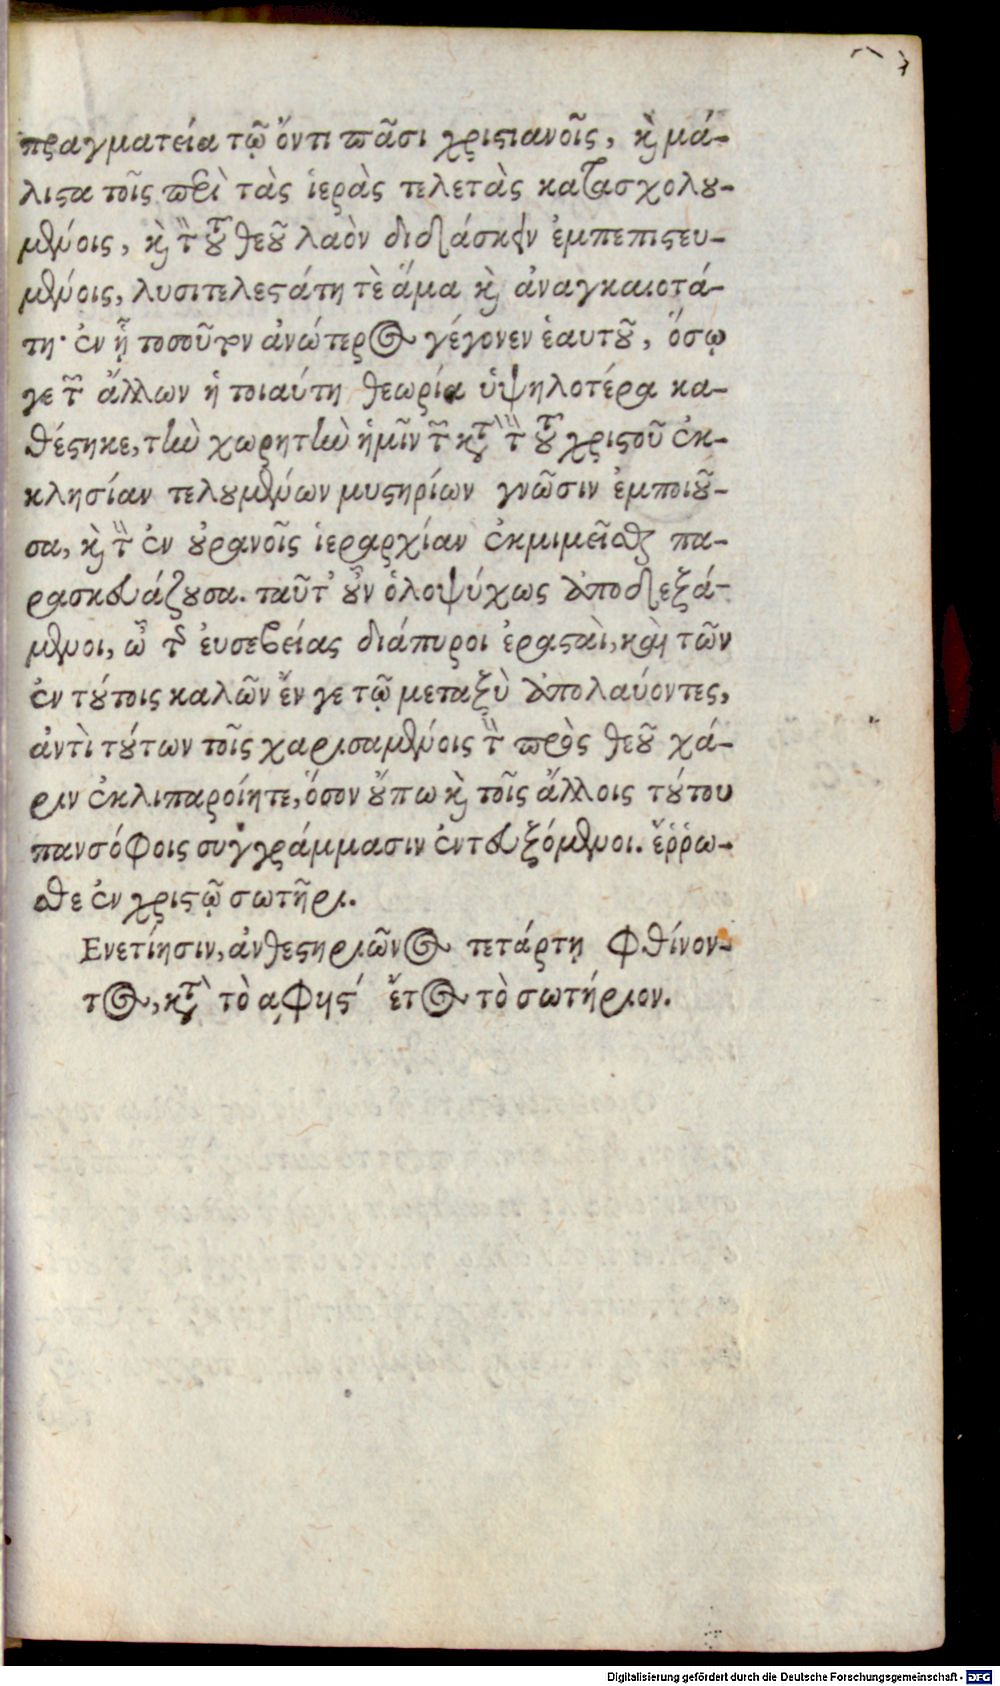 πραγματεία τῷ ὄντι πᾶσι χριστιανοῖς, καὶ μά-
λιστα τοῖς περὶ τὰς ἱερὰς τελετὰς κατασχολου-
μένοις, καὶ τὸν τοῦ θεοῦ λαὸν διδάσκειν ἐμπεπιστευ-
μένοις, λυσιτελεστάτη τὲ ἅμα καὶ ἀναγκαιοτά-
τη· ἐν ᾗ τοσοῦτον ἀνώτερος γέγονεν ἑαυτοῦ, ὅσῳ
γε τῶν ἄλλων ἡ τοιαύτη θεωρία ὑψηλοτέρα κα-
θέστηκε, τὴν χωρητὴν ἡμῖν τῶν κατὰ τὴν τοῦ χριστοῦ ἐκ-
κλησίαν τελουμένων μυστηρίων γνῶσιν ἐμποιοῦ-
σα, καὶ τὴν ἐν οὐρανοῖς ἱεραρχίαν ἐκμιμεῖσθαι πα-
ρασκευάζουσα. ταῦτ᾽ οὖν ὁλοψύχως ἀποδεξά-
μενοι, ὦ τῆς ἐυσεβείας διάπυροι ἐρασταὶ, καὶ τῶν
ἐν τούτοις καλῶν ἔν γε τῷ μεταξὺ ἀπολαύοντες,
ἀντὶ τούτων τοῖς χαρισαμένοις τὴν πρὸς θεοῦ χά-
ριν ἐκλιπαροίητε, ὅσον οὔπω καὶ τοῖς ἄλλοις τούτου
πανσόφοις συγγράμμασιν ἐντευξόμενοι. ἔῤῥω-
σθε ἐν χριστῷ σωτῆρι.
Ενετίησιν, ἀνθεστηριῶνος τετάρτῃ φθίνον-
τος, κατὰ τὸ ͵αφϟςʹ ἔτος τὸ σωτήριον.
Digitalisierung gefördert durch die Deutsche Forschungsgemeinschaft - DFG